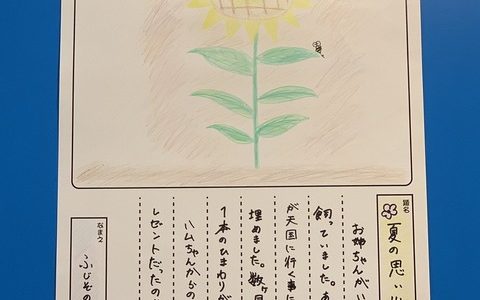 題名
夏の思い
お姉ちゃんがハ
飼っていました。あ
が天国に行く事に
埋めました。数ヶ月
1本のひまわりが
ハムちゃんからの
レゼントだったの
なまえ
ふじその